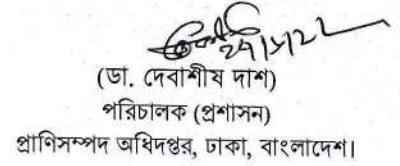 (ডা. দেবাশীষ দাশ)
পরিচালক (প্রশাসন)
প্রাণিসম্পদ অধিদপ্তর, ঢাকা, বাংলাদেশ।